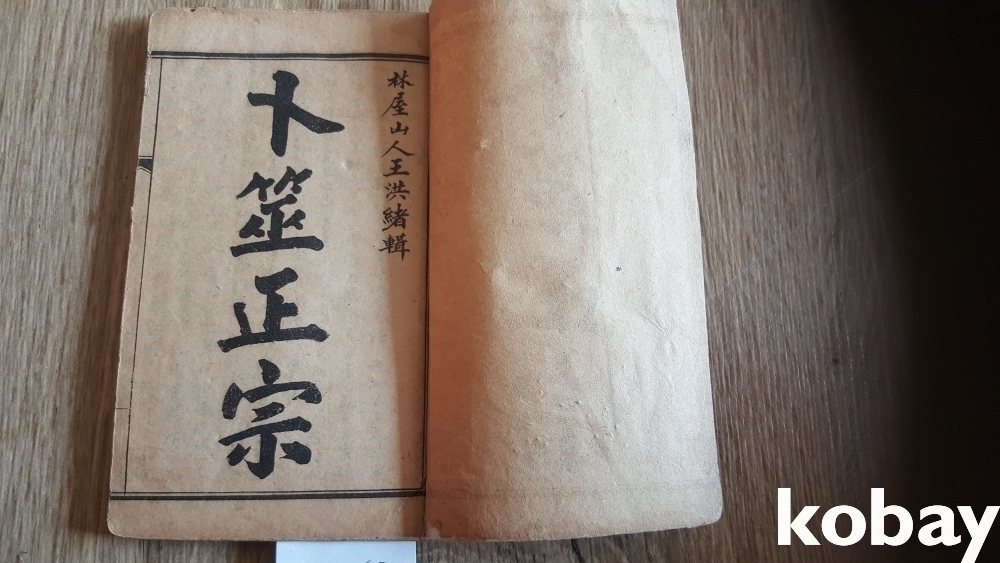 林屋山人王洪緒輯
卜筮正宗
kobay